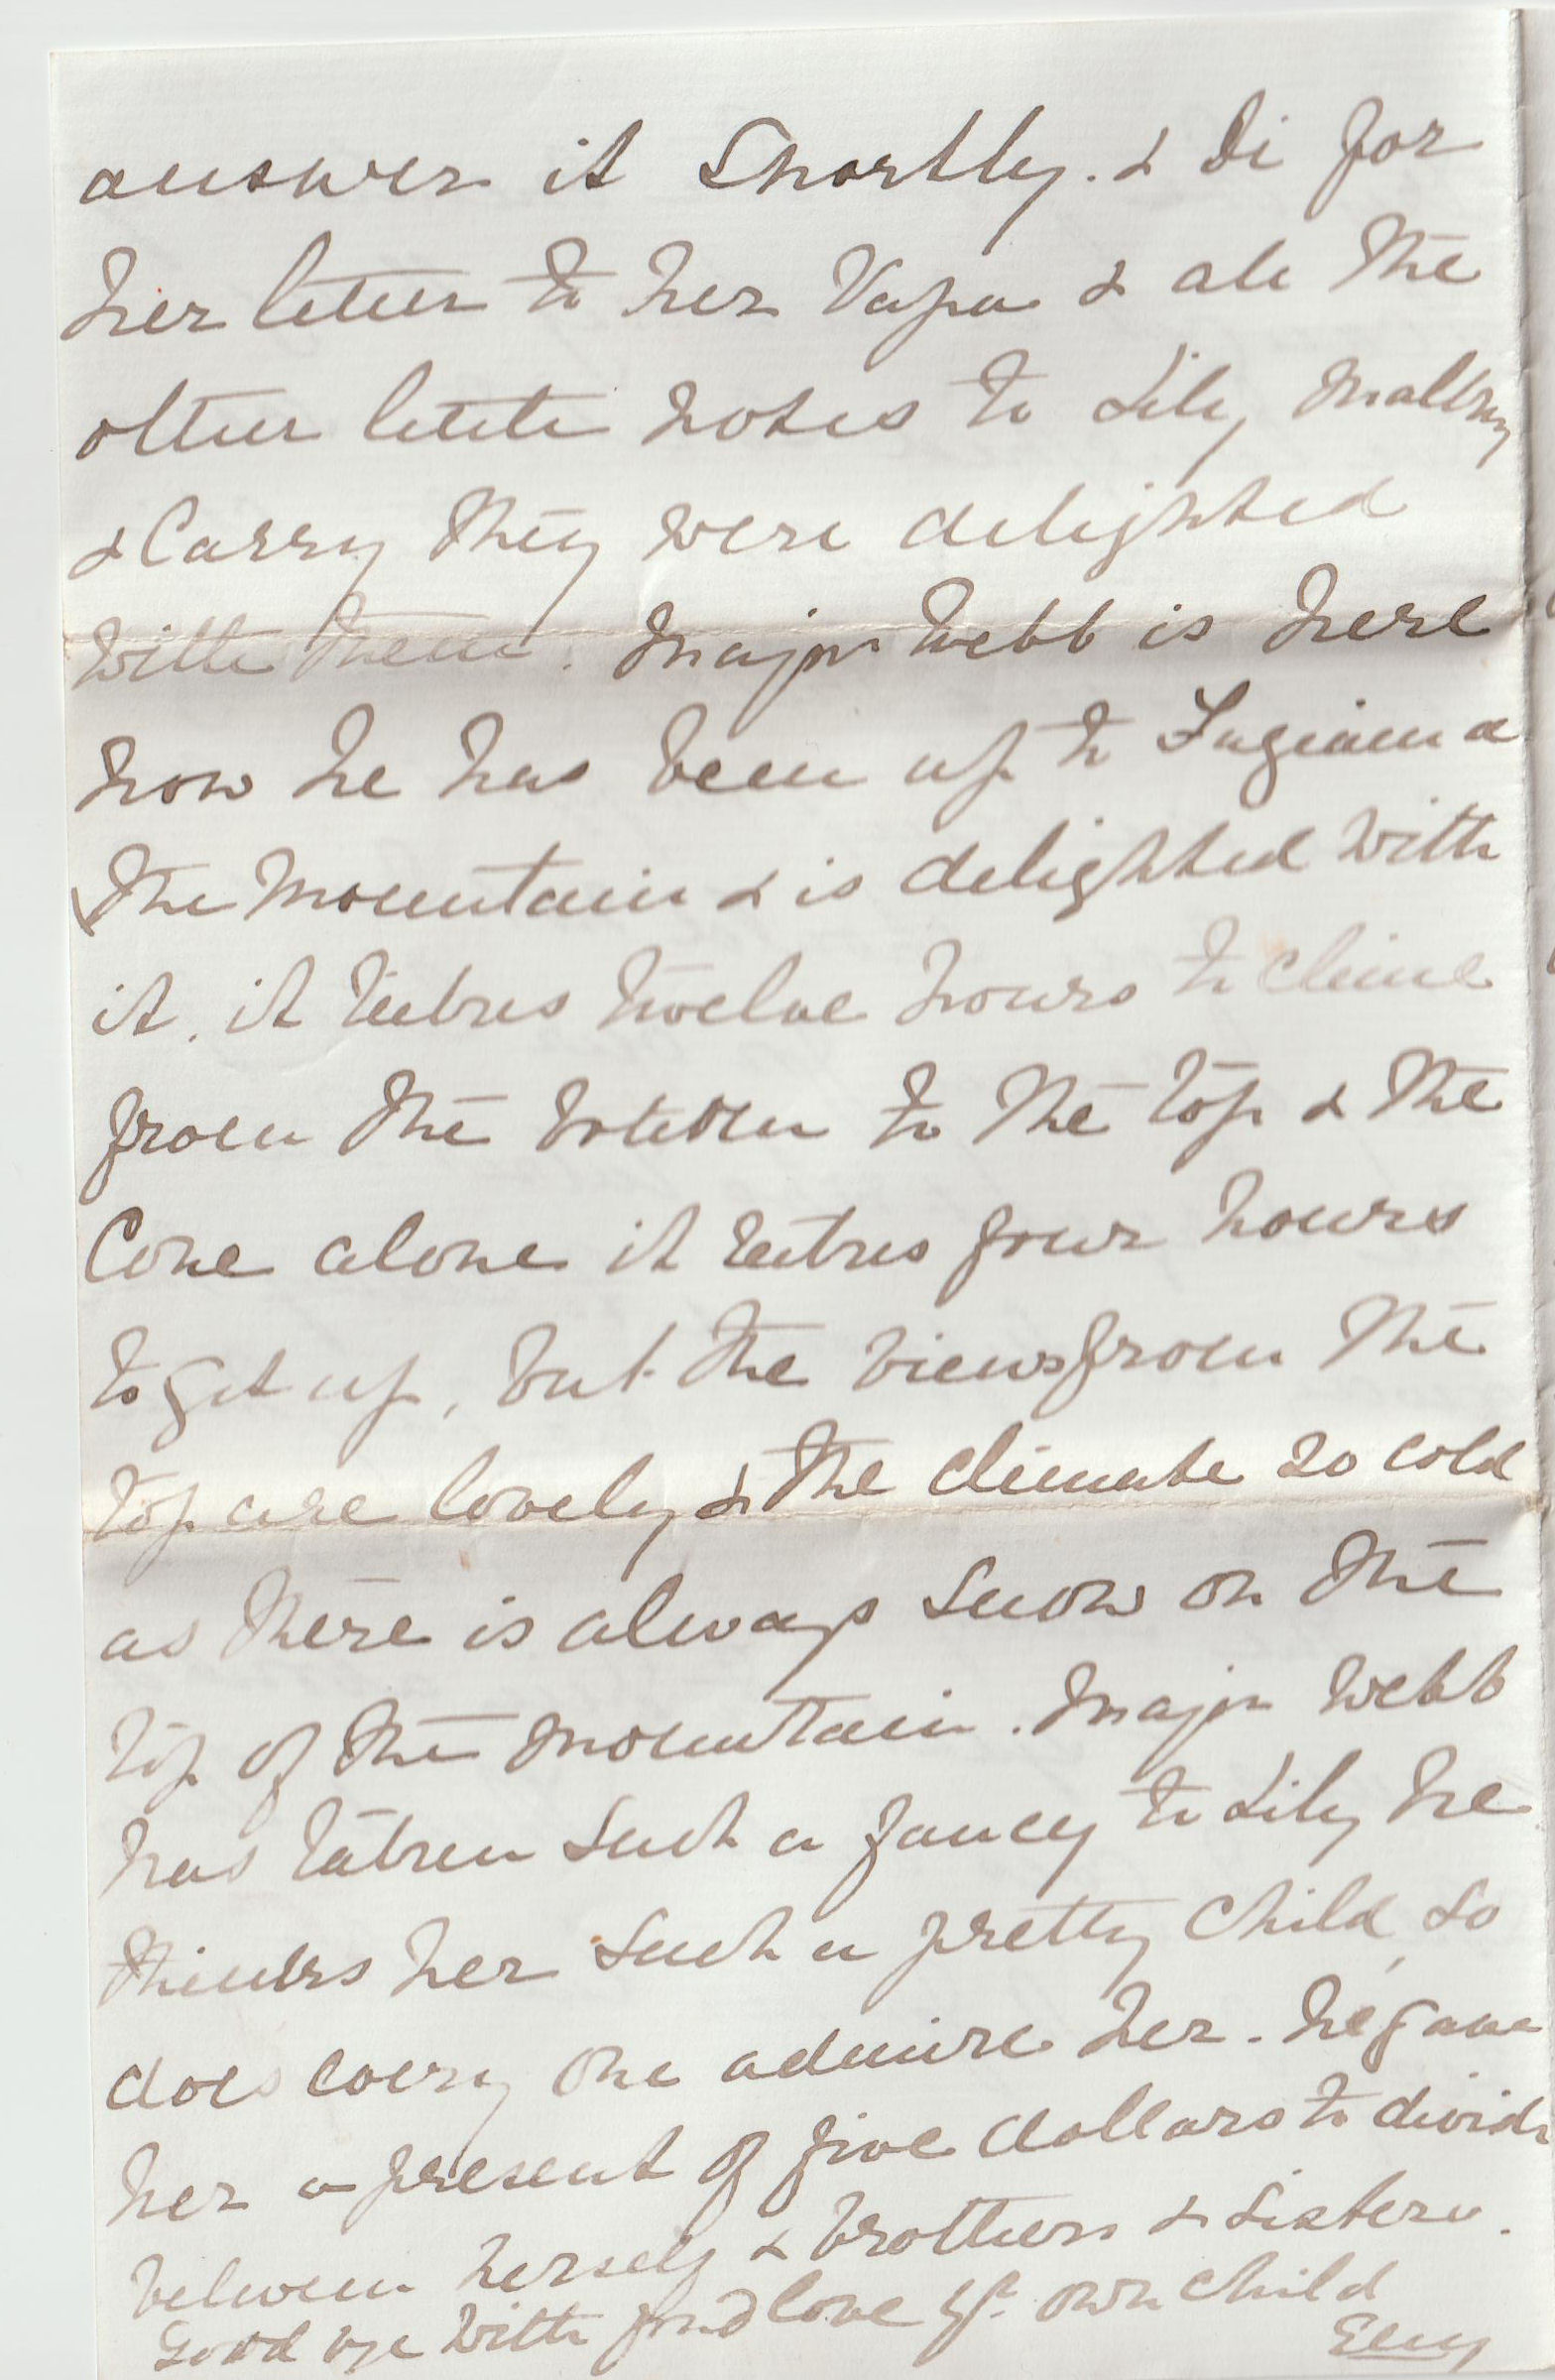 answer it Shortly. & Di for
her letter to her Papa & all the
other little notes to Lily Mallny
& Carry they were delighted
with them. Major Webb is here
now he has been up to Fugiama
the Mountain & is delighted with
it, it takes twelve hours to clime
from the bottom to the top & the
Cone alone it takes four hours
to get up, but the views from the
top are lovely & the climate so cold
as there is always snow on the
top of the mountain. Major Webb
has taken such a fancy to Lily he
thinks her such a pretty child, so
does every one admire her. he gave
her a present of five dollars to divide
between herself & brothers & sisters.
Good bye with fond love yr. own child